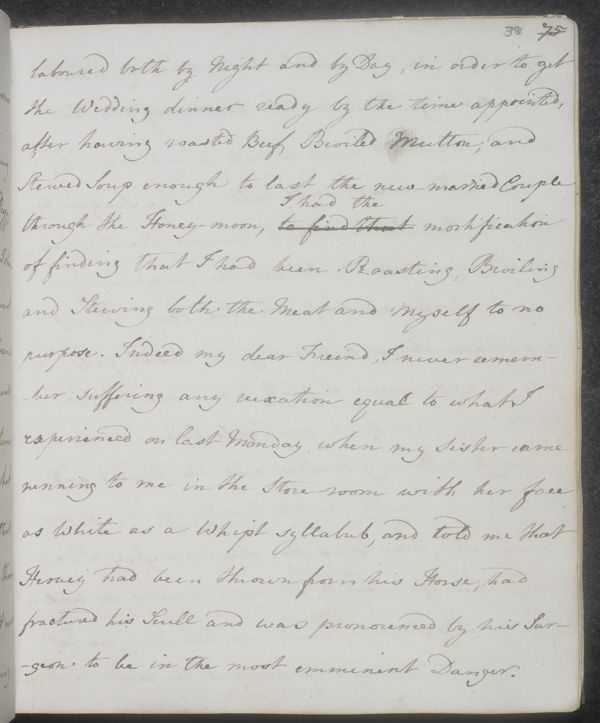 38 75
laboured both by Night and by Day, in order to get
the Wedding dinner ready by the time appointed,
after having roasted Beef, Broiled Mutton, and
Stewed Soup enough to last the new-married Couple
I had the
through the Honey-moon, to find that mortification
of finding that I had been Roasting, Broiling
and Stewing both the Meat and Myself to no
purpose. Indeed my dear Freind, I never remem-
-ber suffering any vexation equal to what I
experienced on last Monday when my Sister came
running to me in the Store-room with her face
as White as a Whipt syllabub, and told me that
Hervey had been thrown from his Horse, had
fractured his Scull and was pronounced by his Sur-
-geon to be in the most emminent Danger.